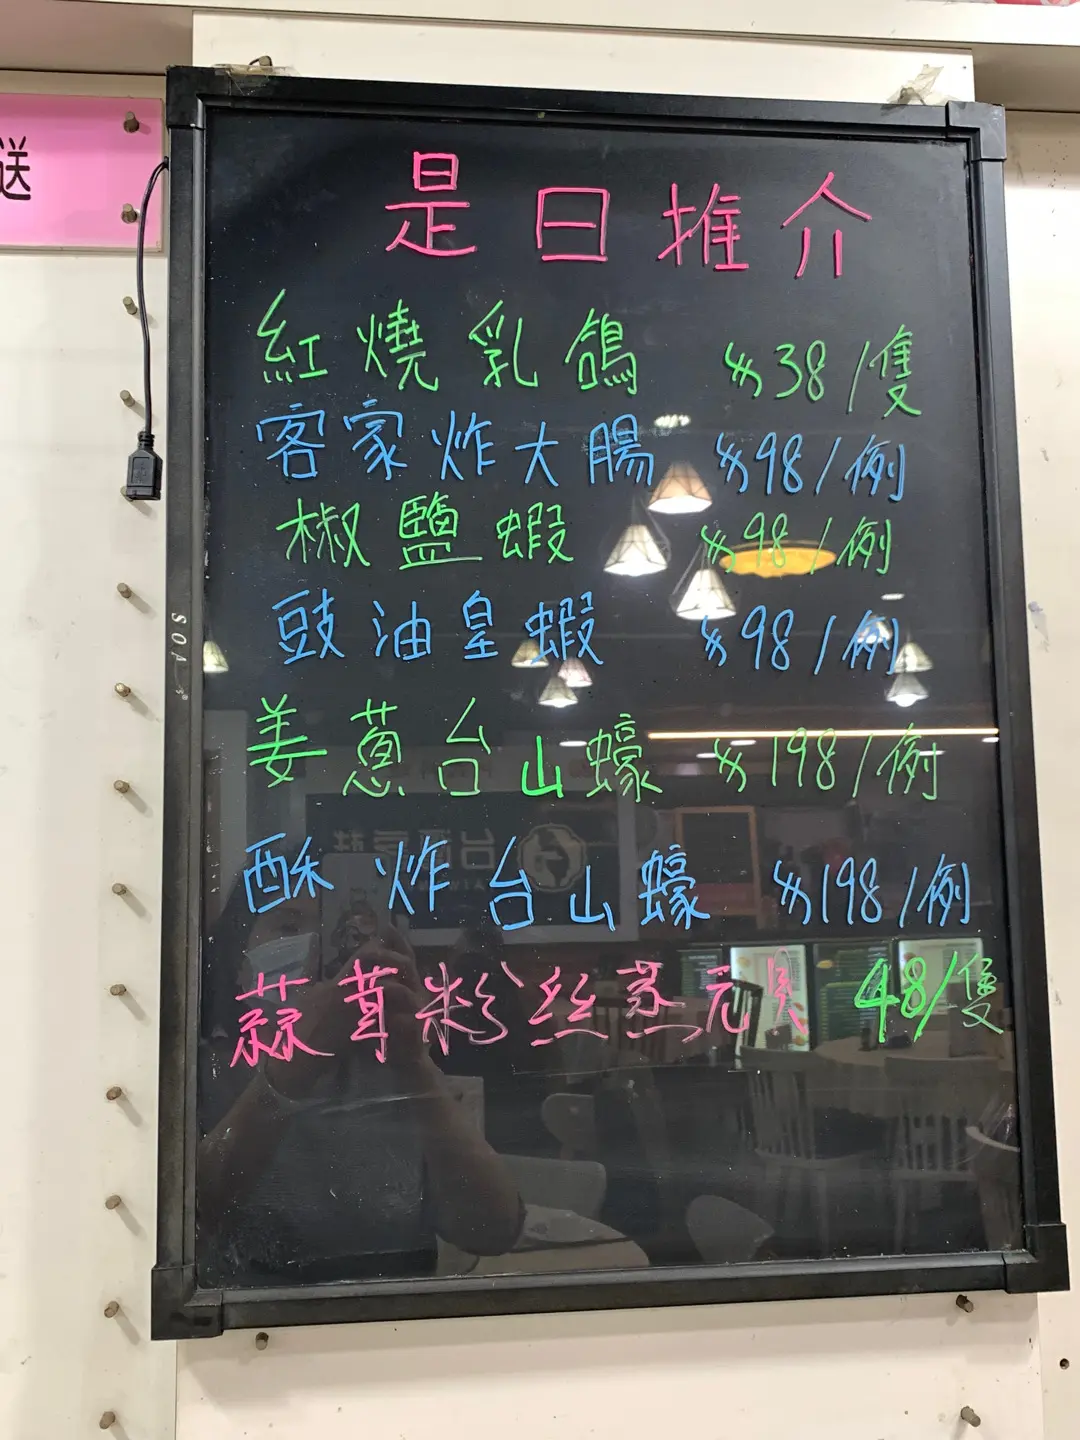 送
是日推介
紅燒乳鴿 $38/隻
客家炸大腸 $98/例
椒鹽蝦 $98/例
豉油皇蝦 $98/例
姜蔥台山蠔 $198/例
酥炸台山蠔 $198/例
蒜茸粉丝蒸元貝 48/隻